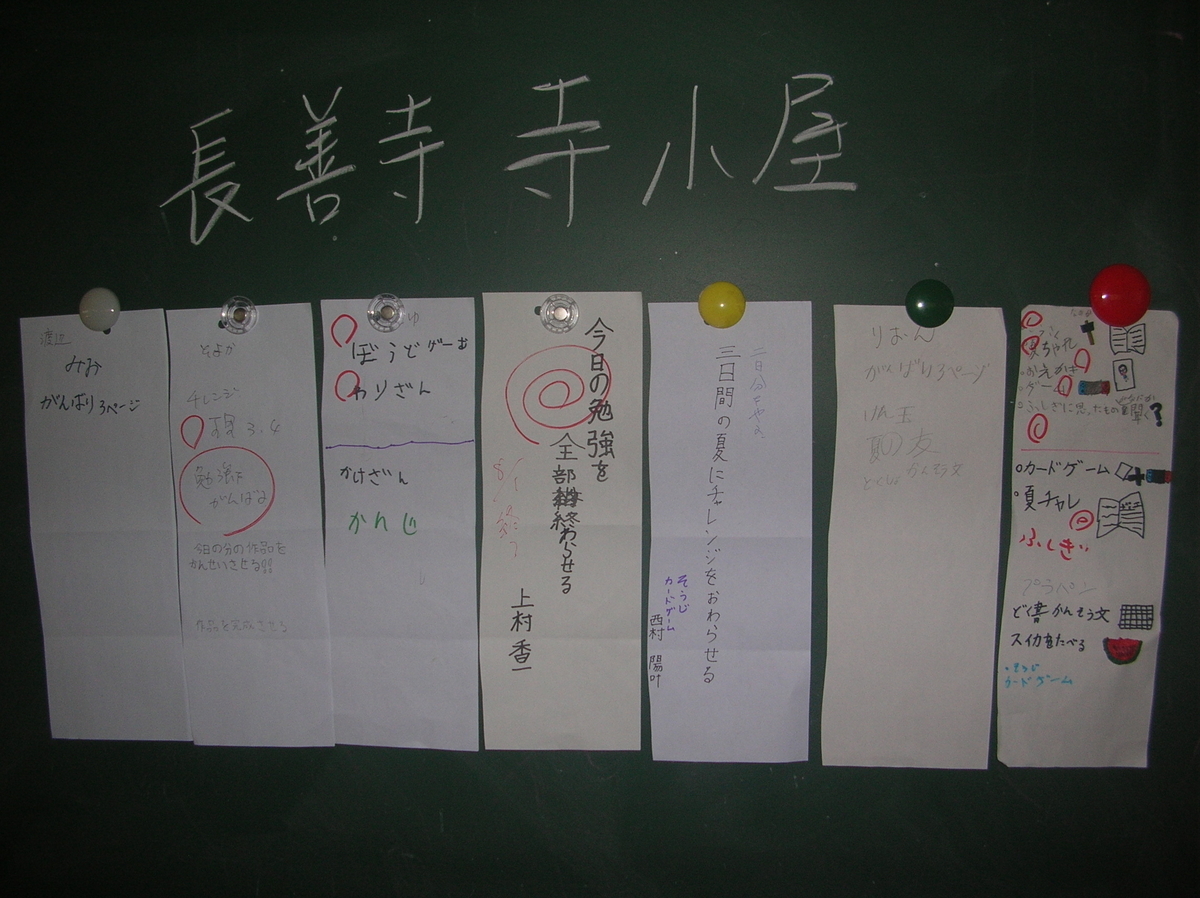 長善寺 寺小屋
渡辺
みお
がんばり3ページ
そよか
チレンジ
3.4
勉強
がんばる
今日の分の作品を
かんせいさせる!!!
作品を完成させる
ゆ
ぼうどゲーむ
わりざん
かけざん
かんじ
今日の勉強を
全部終わらせる
8/1 終つ
上村 香一
二日分をやる。
三日間の夏にチャレンジをおわらせる
そうじ
カードゲーム
西村 陽叶
りおん
がんばり3ページ
けん玉
夏の友
どくしょかんそう文
夏ちゃれ
おえかき
ゲーム
ふしぎに思ったもの
聞く?
カードゲーム
夏チャレ
ふしぎ
プラバン
どく書かんそう文
スイカをたべる
そうじ
カードゲーム